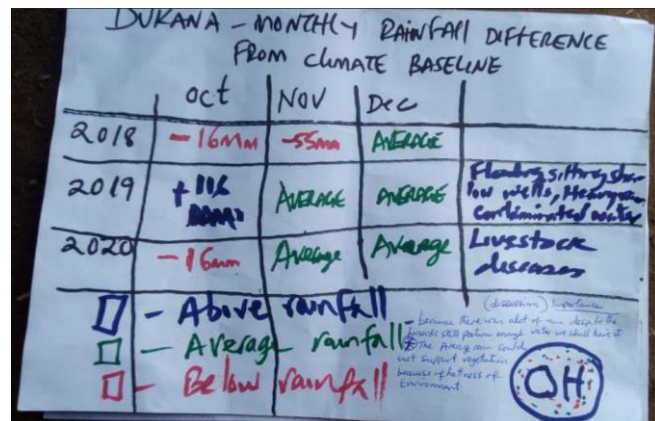 DUKANA - MONTHLY RAINFALL DIFFERENCE
FROM CLIMATE BASELINE
Oct NOV Dec
2018 -16mm -55mm AVERAGE
2019 +116 AVERAGE AVERAGE Flooding,
low wells,
contaminated water
2020 -16mm Average Average Livestock
diseases
- Above rainfall
- Average rainfall
- Below rainfall
(discussion) Importance
- because there was alot of rain despite the
still pasture enough water we shall have it
The Average rain could
not support vegetation
because of hotness of
Environment
OH